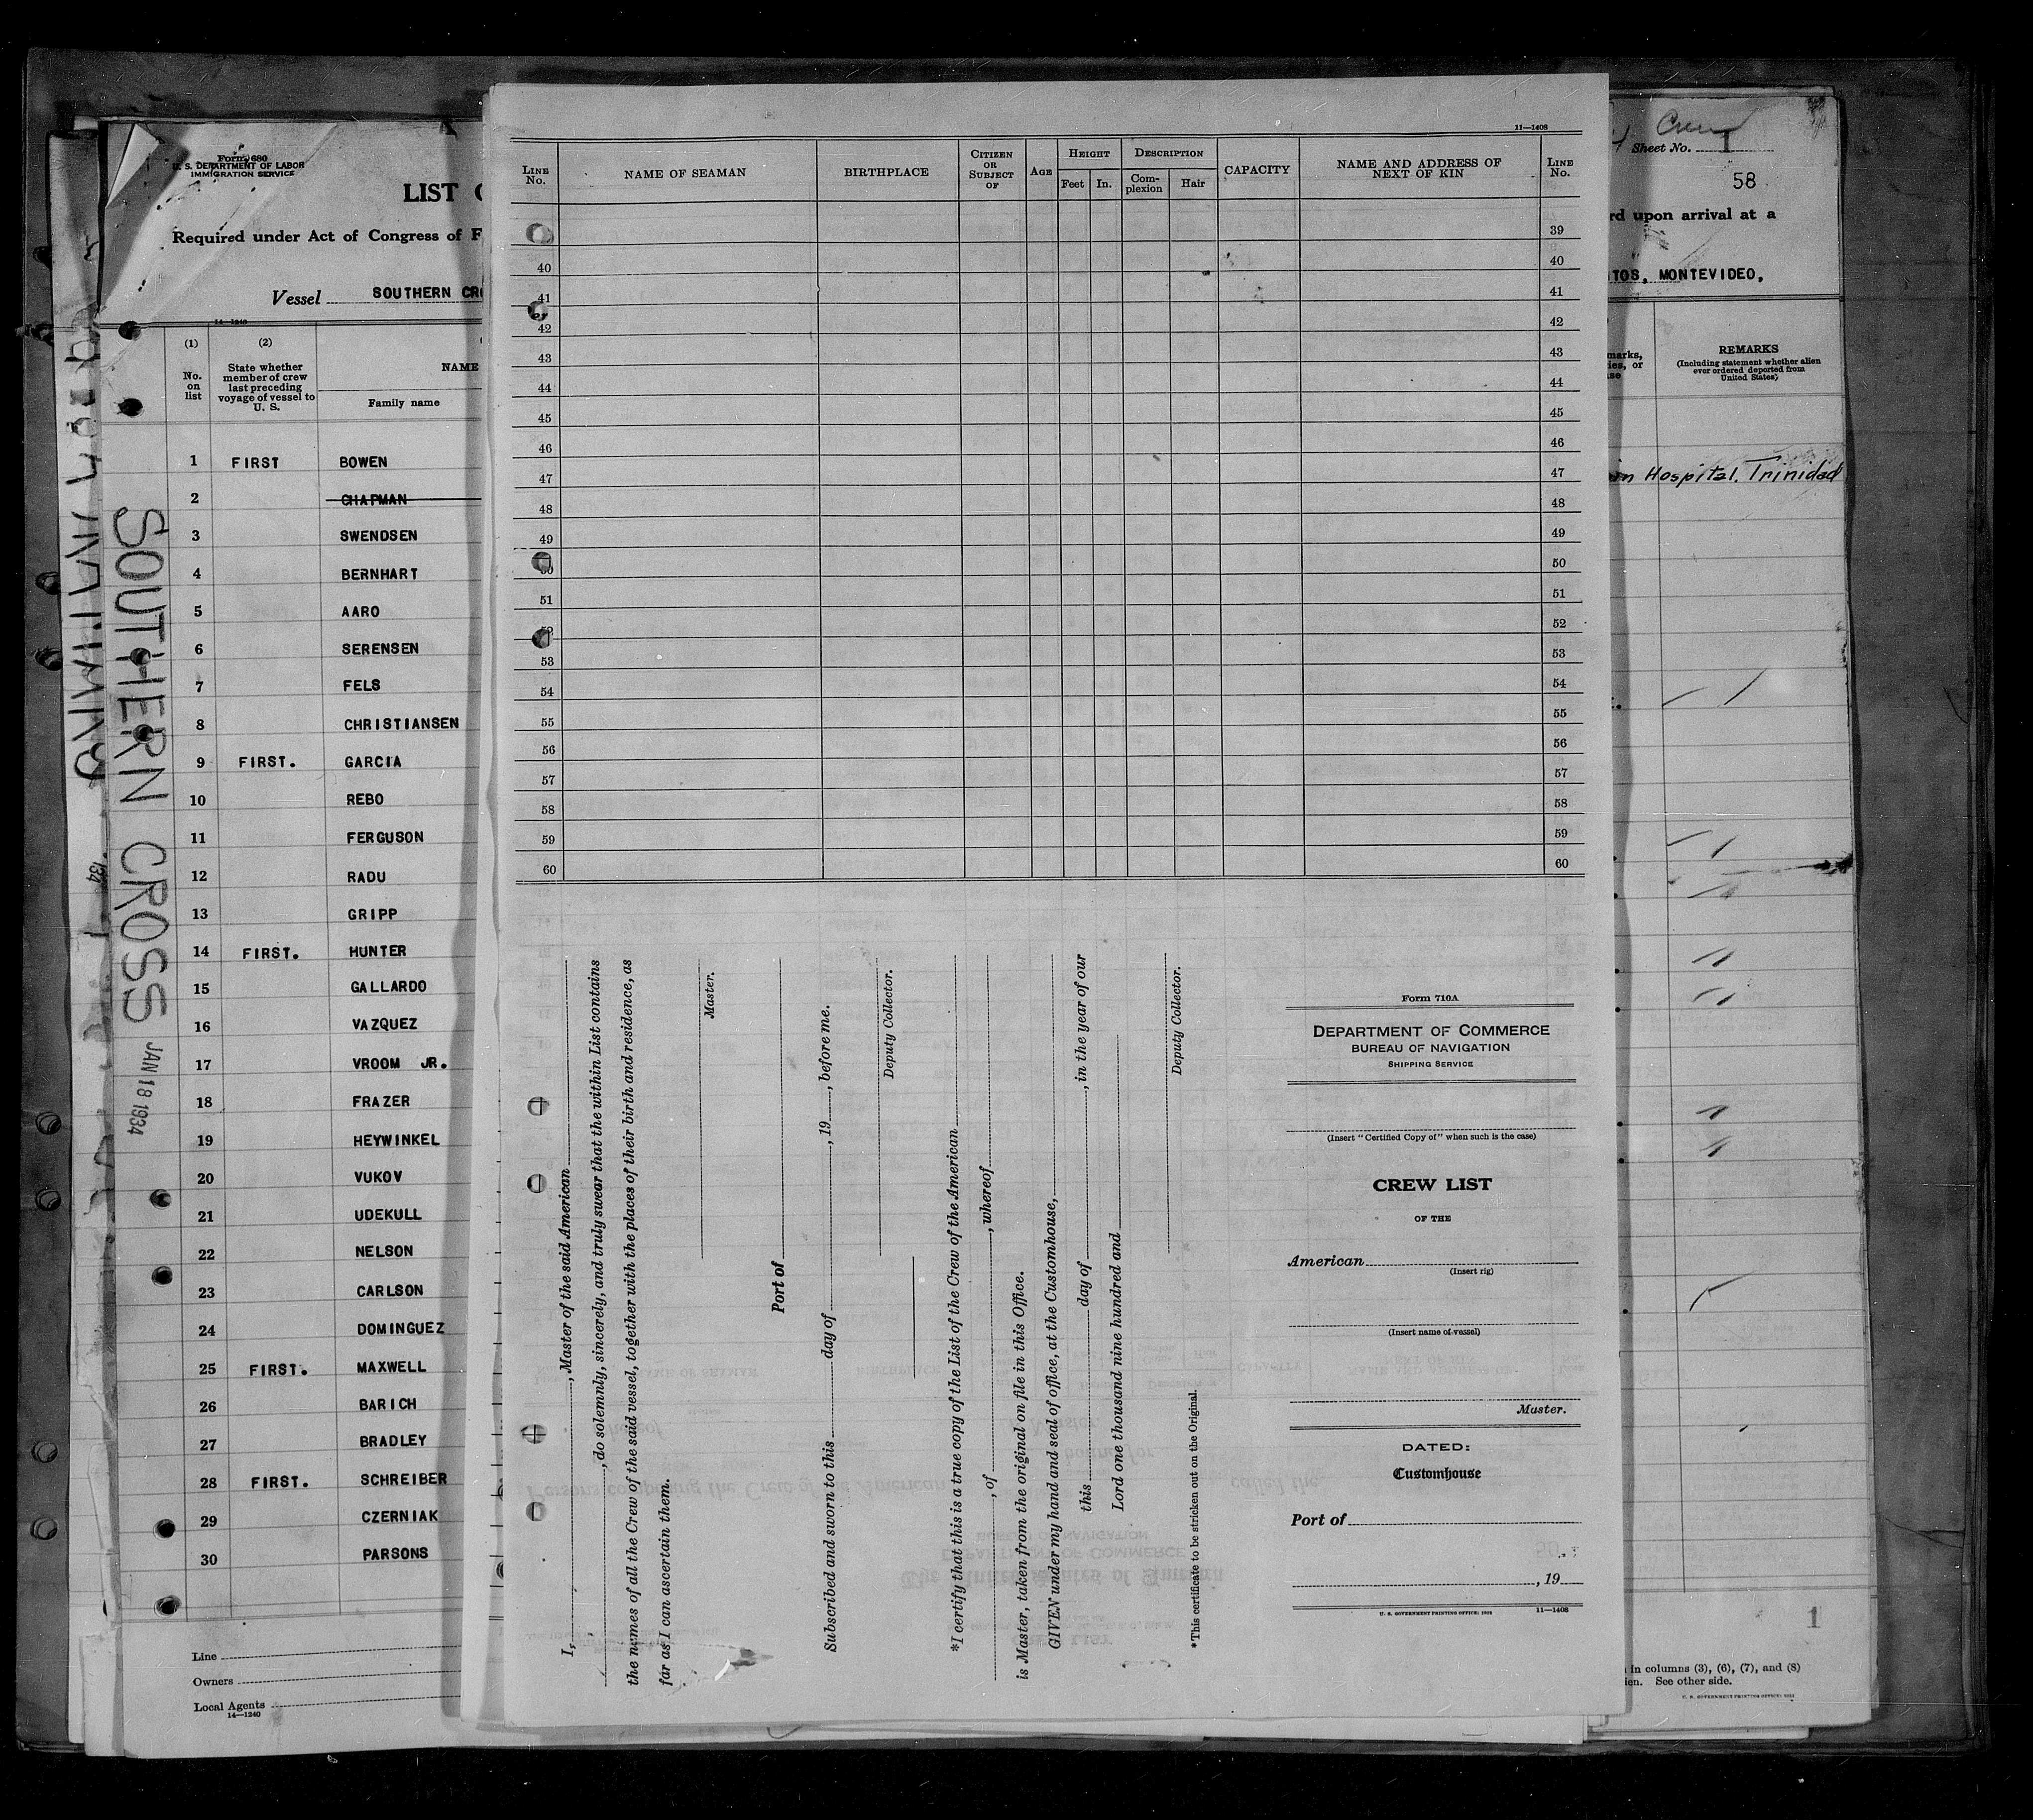 Form 680
U. S. DEPARTMENT OF LABOR
IMMIGRATION SERVICE
LIST
Required under Act of Congress of F
Vessel SOUTHERN CRO
14—1240
(1)
No. on list
(2)
State whether member of crew last preceding voyage of vessel to U. S.
NAME
Family name
1 FIRST BOWEN
2 CHAPMAN
3 SWENDSEN
4 BERNHART
5 AARO
6 SERENSEN
7 FELS
8 CHRISTIANSEN
9 FIRST. GARCIA
10 REBO
11 FERGUSON
12 RADU
13 GRIPP
14 FIRST. HUNTER
15 GALLARDO
16 VAZQUEZ
17 VROOM JR.
18 FRAZER
19 HEYWINKEL
20 VUKOV
21 UDEKULL
22 NELSON
23 CARLSON
24 DOMINGUEZ
25 FIRST. MAXWELL
26 BARICH
27 BRADLEY
28 FIRST. SCHREIBER
29 CZERNIAK
30 PARSONS
Line
Owners
Local Agents
14—1240
SOUTHERN CROSS JAN 18 1934
11—1408
LINE No.
NAME OF SEAMAN
BIRTHPLACE
CITIZEN OR SUBJECT OF
AGE
HEIGHT
Feet In.
DESCRIPTION
Complexion Hair
CAPACITY
NAME AND ADDRESS OF NEXT OF KIN
LINE No.
39
40 40
41 41
42 42
43 43
44 44
45 45
46 46
47 47
48 48
49 49
50 50
51 51
52 52
53 53
54 54
55 55
56 56
57 57
58 58
59 59
60 60
I, , Master of the said American
, do solemnly, sincerely, and truly swear that the within List contains
the names of all the Crew of the said vessel, together with the places of their birth and residence, as
far as I can ascertain them.
Master.
Port of
Subscribed and sworn to this day of , 19 , before me.
Deputy Collector.
*I certify that this is a true copy of the List of the Crew of the American
, of , whereof
is Master, taken from the original on file in this Office.
GIVEN under my hand and seal of office, at the Customhouse,
this day of , in the year of our
Lord one thousand nine hundred and
Deputy Collector.
*This certificate to be stricken out on the Original.
Form 710A
DEPARTMENT OF COMMERCE
BUREAU OF NAVIGATION
SHIPPING SERVICE
(Insert "Certified Copy of" when such is the case)
CREW LIST
OF THE
American
(Insert rig)
(Insert name of vessel)
Master.
DATED:
Customhouse
Port of
, 19
U. S. GOVERNMENT PRINTING OFFICE:
11—1408
Crew
Sheet No. 1
58
rd upon arrival at a
TOS, MONTEVIDEO,
marks,
ies, or
se
REMARKS
(Including statement whether alien ever ordered deported from United States)
in Hospital. Trinidad
1
in columns (3), (6), (7), and (8)
ien. See other side.
U. S. GOVERNMENT PRINTING OFFICE: